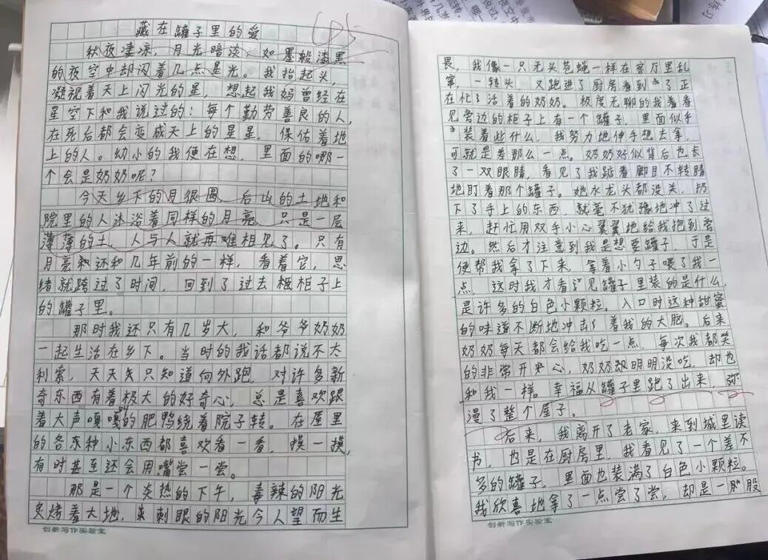 藏在罐子里的爱
秋夜凄凉，月光暗淡，如墨般漆黑
的夜空中却闪着几点星光。我抬起头，
凝视着天上闪光的星，想起我妈曾经在
星空下和我说过的：每个勤劳善良的人，
在死后都会变成天上的星星，保佑着地
上的人。幼小的我便在想，里面的哪一
个会是奶奶呢？
今天乡下的月很圆，后山的土地和
院里的人沐浴着同样的月亮，只是一层
薄薄的土，人与人就再难相见了。只有
月亮和还和几年前的一样，看着它，思
绪就跨过了时间，回到了过去柜子上
的罐子里。
那时我还只有几岁大，和爷爷奶奶
一起生活在乡下。当时的我话都说不太
利索，天天只知道向外跑，对许多新
奇东西有着极大的好奇心，总是喜欢跟
着大声嘎嘎的肥鸭绕着院子转。在屋里
的各种小东西都喜欢看一看，摸一摸，
有时甚至还会用嘴尝一尝。
那是一个炎热的下午，毒辣的阳光
炙烤着大地，刺眼的阳光令人望而生
创新写作实验室
畏，我像一只无头苍蝇一样在客厅里乱
窜，一转头，又跑进了厨房看到了正
在忙活着的奶奶。极度无聊的我看着
见旁边的柜子上有一个罐子，里面似乎
装着些什么，我努力地伸手想去拿，
可就是差那么一点。奶奶好似背后也长
了一双眼睛，看见了我踮着脚目不转睛
地盯着那个罐子。她水龙头都没关，扔
下了手上的东西，就毫不犹豫地冲了过
来，赶忙用双手小心翼翼地给我抱到旁
边。然后才注意到我是想要罐子，于是
便帮我拿了下来，拿着小勺子喂了我一
点，这时我才看见罐子里装的是什么，
是许多的白色小颗粒，入口时这种甜蜜
的味道不断地冲击着我的大脑。后来
奶奶每天都会给我吃一点，每次我都笑
的非常开心，奶奶明明没吃，却也
和我一样。幸福从罐子里跑了出来，弥
漫了整个屋子。
后来，我离开了老家，来到城里读
书，也是在厨房里，我看见了一个差不
多的罐子，里面也装满了白色小颗粒。
我欣喜地拿了一点尝了尝，却是一股